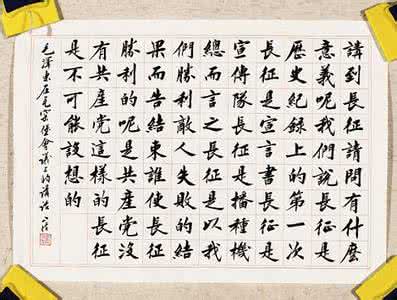 講到長征請問有什麼
意義呢我們說長征是
歷史紀錄上的第一次
長征是宣言書長征是
宣傳隊長征是播種機
總而言之長征是以我
們勝利敵人失敗的結
果而告結束誰使長征
勝利的呢是共產黨沒
有共產黨這樣的長征
是不可能設想的
毛澤東在瓦窑堡會議上的講話